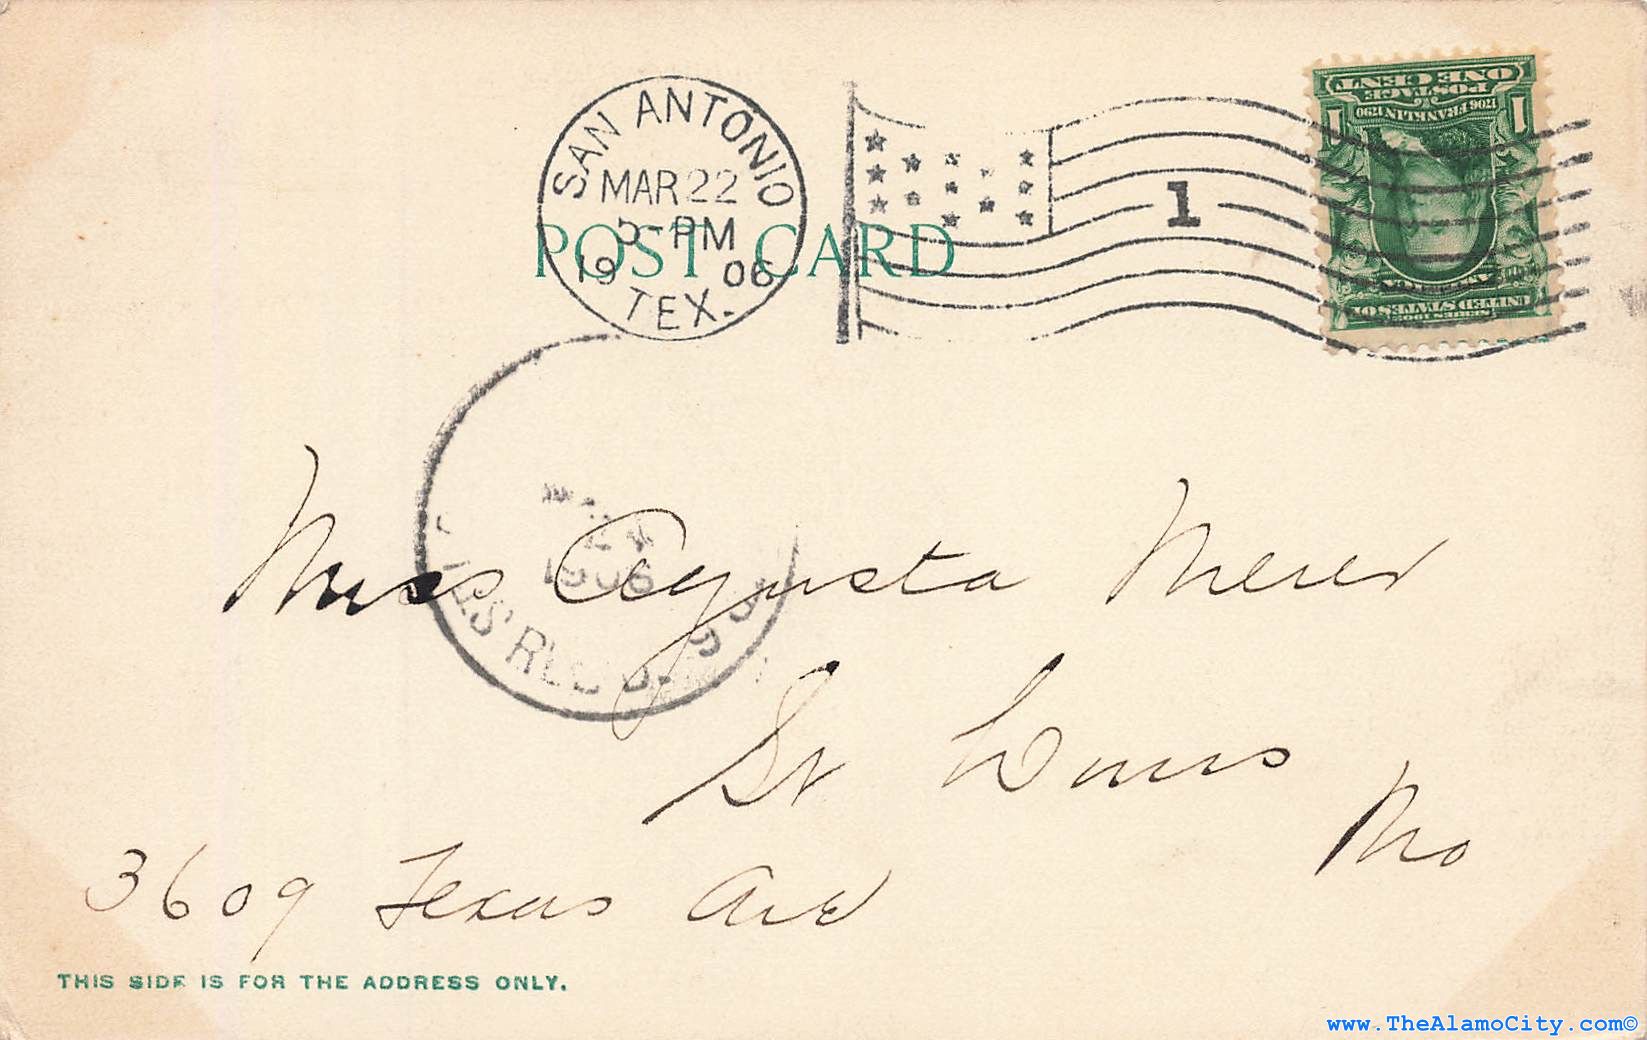 SAN ANTONIO
MAR 22
5-PM
1906
TEX.
1
POST CARD
ONE CENT
POSTAGE
1706 FRANKLIN 1790
1 1
UNITED STATES OF
1906
REC'D.
Miss Agusta
St Louis
Mo
3609 Texas Ave
THIS SIDE IS FOR THE ADDRESS ONLY.
www.TheAlamoCity.com©